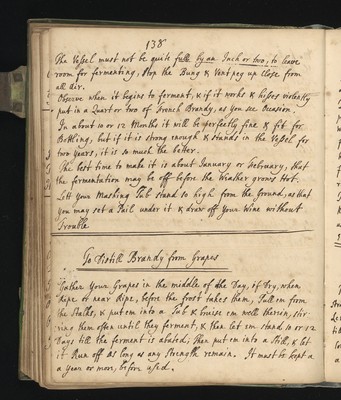 138
The Vessel must not be quite full by an Inch or two, to leave
room for fermenting, stop the Bung & Vent peg up close from
all air.
Observe when it begins to ferment, & if it works & hisses violently
put in a Quart or two of French Brandy, as you see Occasion.
In about 10 or 12 Months it will be perfectly fine & fit for
Bottling, but if it is strong enough & stands in the Vessel for
two years, it is so much the better.
The best time to make it is about January or February, that
the fermentation may be off before the Weather grows Hot.
Lett Your Mashing Tub stand so high from the Ground, as that
you may set a Pail under it & draw off Your Wine without
Trouble
To Distill Brandy from Grapes
Gather Your Grapes in the middle of the Day, if Dry, when
Ripe or near Ripe, before the frost takes them, Pull em from
the Stalks, & put em into a Tub & bruise em well therein, stir-
ring them often until they ferment, & then let em stand 10 or 12
Days till the ferment is abated; then put em into a Still, & let
it Run off as long as any Strength remain. It must be kept a
a Year or more, before used.